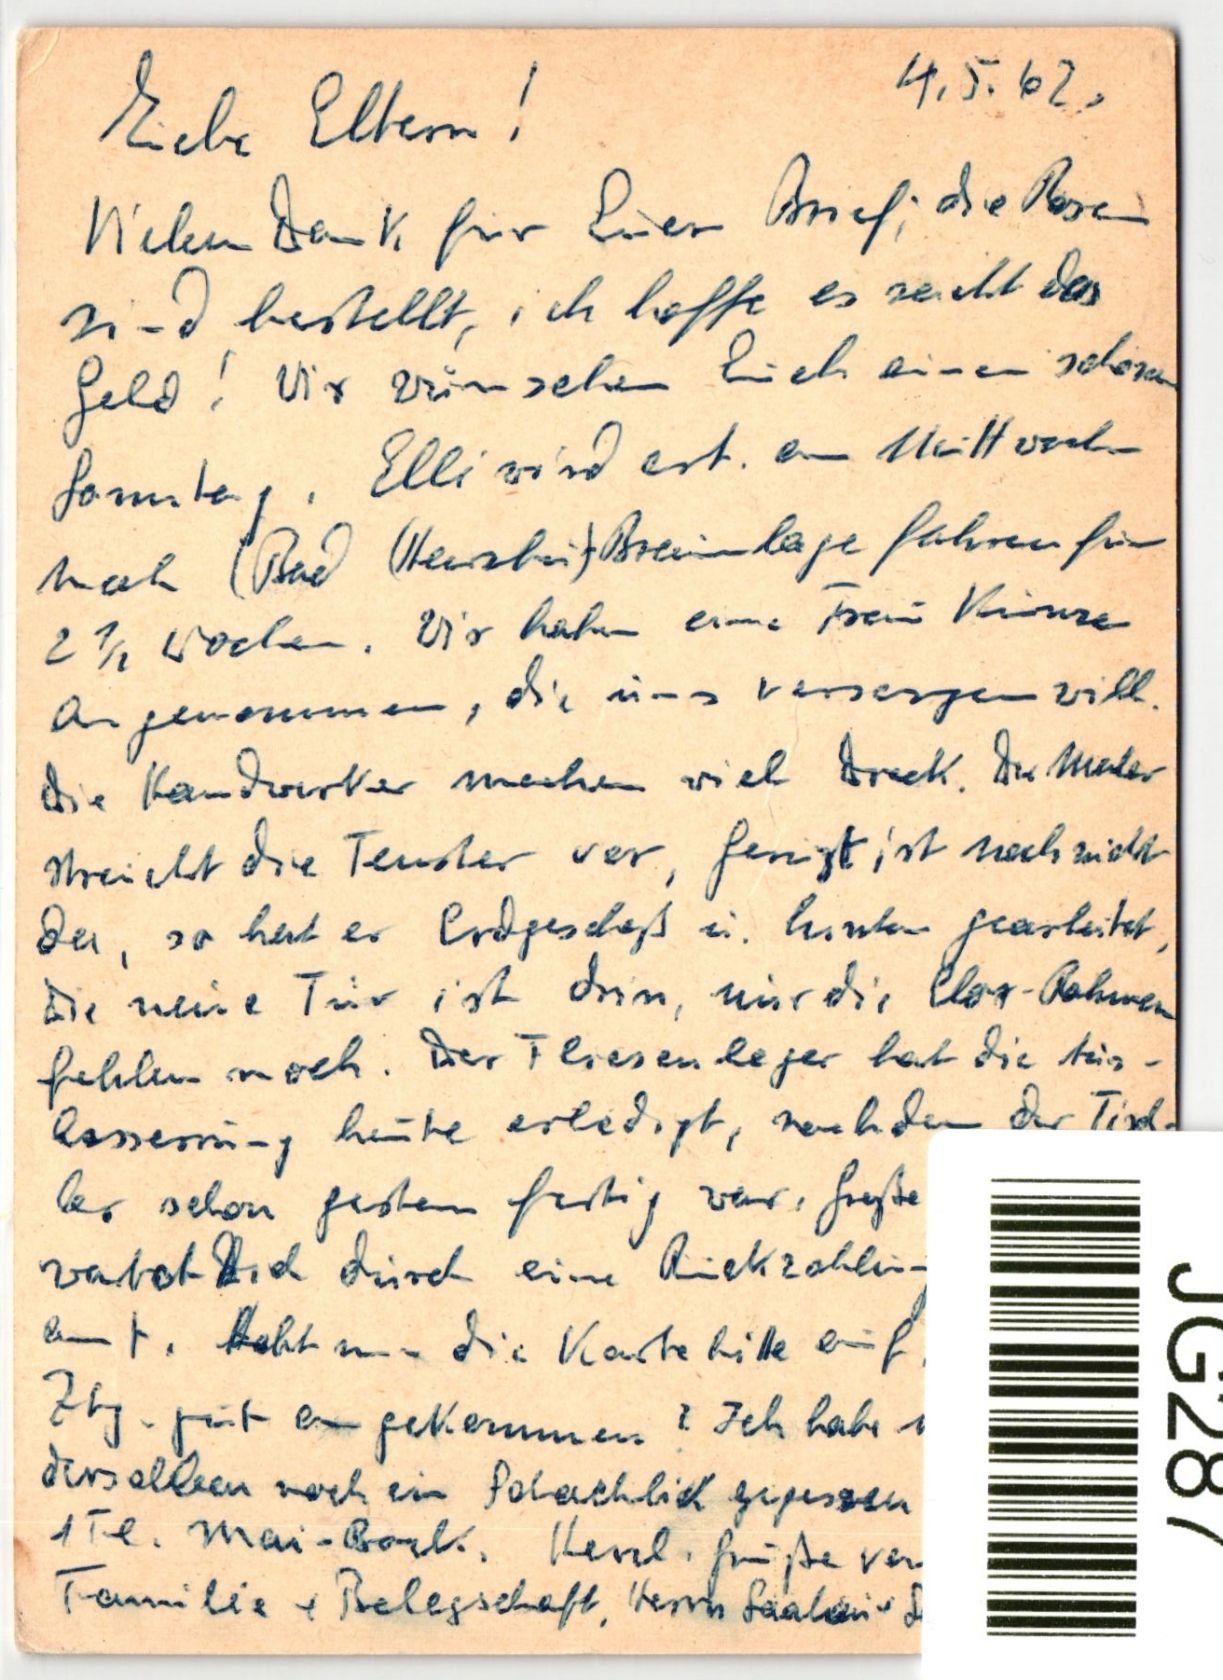 4.5.62.
Liebe Eltern!
Vielen Dank für Euern Brief; die Rosen
sind bestellt, ich hoffe es reicht das
Geld! Wir wünschen Euch einen schönen
Sonntag. Elli wird erst. am Mittwoch
nach (Bad Braunlage fahren für
2 1/2 Wochen. Wir haben eine Frau
angenommen, die uns versorgen will.
Die Handwerker machen viel Dreck. Der Maler
streicht die Fenster vor, Gerüst ist noch nicht
da, so hat er Erdgeschoß u. hinten gearbeitet,
Die neue Tür ist drin, nur die Rahmen
fehlen noch. Der Fliesenleger hat die Aus-
besserung heute erledigt, nachdem der Tisch-
ler schon gestern fertig war. Große
wartet Dich durch eine Rückzahlung
amt. die Karte bitte auf.
Ztg. gut angekommen? Ich habe
derselben noch ein Schachlick gegessen
1 Fl. Mai-Bock. Herzl. Grüße von
Familie + Belegschaft, Herrn
JG287